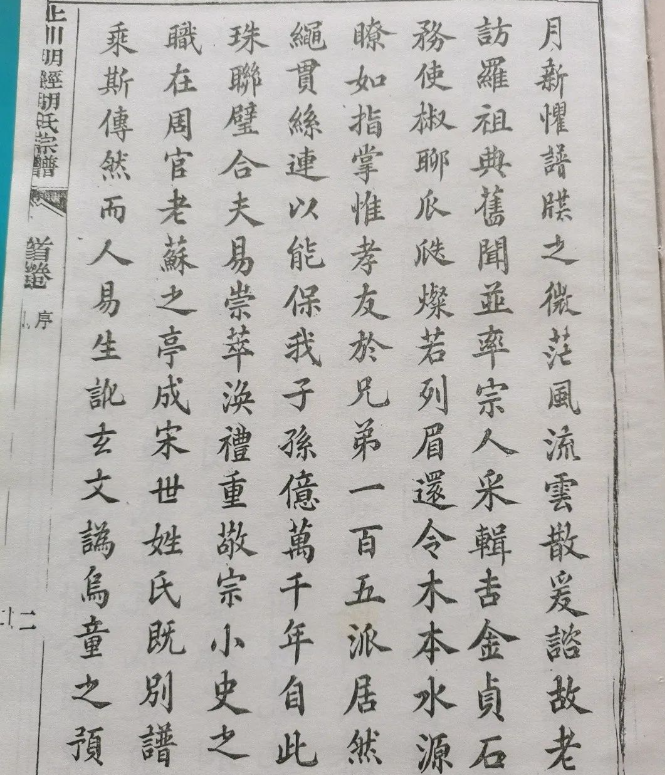 月新懼譜牒之微茫風流雲散爰諮故老
訪羅祖典舊聞並率宗人采輯吉金貞石
務使椒聊瓜瓞燦若列眉還令木本水源
瞭如指掌惟孝友於兄弟一百五派居然
繩貫絲連以能保我子孫億萬千年自此
珠聯璧合夫易崇萃渙禮重敬宗小史之
職在周官老蘇之亭成宋世姓氏既別譜
乘斯傳然而人易生訛玄文譌烏童之預
上川明經胡氏宗譜
首卷
序
二